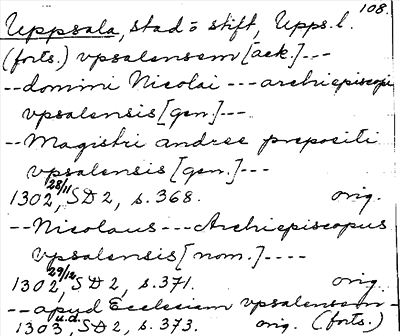 108.
Uppsala, stad o stift, Upps. l.
(forts.) vpsalensem [ack.]---
--domini Nicolai --- archiepiscopi
vpsalensis [gen.]---
--Magistri andree prepositi
vpsalensis [gen.]---
1302 28/11, SD 2, s. 368. orig.
--Nicolaus---Archiepiscopus
vpsalensis [nom.]----
1302 29/12, SD 2, s. 371. orig.
--apud Ecclesiam vpsalensem-
1303 u.d., SD 2, s. 373. orig. (forts.)